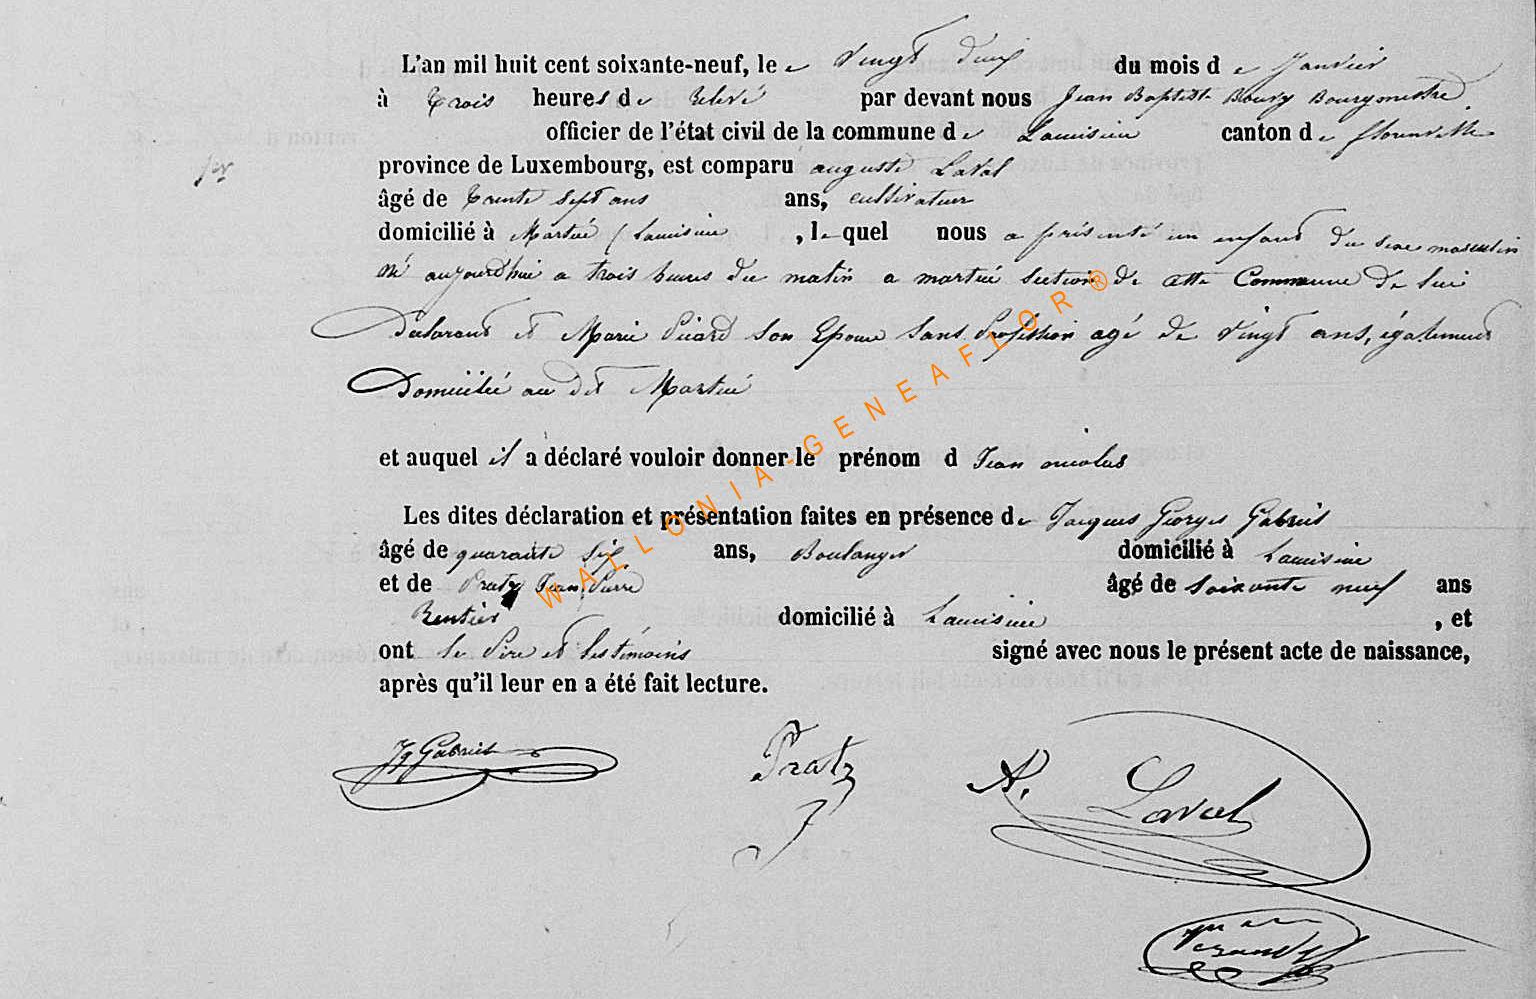 L'an mil huit cent soixante-neuf, le vingt deux du mois de Janvier
à trois heures de Relevé par devant nous Jean Baptiste Bourg Bourgmestre
officier de l'état civil de la commune de Lacuisine canton de florenville
province de Luxembourg, est comparu auguste Laval
âgé de trente sept ans ans, cultivateur
domicilié à Martué / Lacuisine, lequel nous a présenté un enfant du sexe masculin
né aujourdhui a trois heures du matin a martué section de cette Commune de lui
Déclarant et Marie Picard son Epouse sans Profession agé de vingt ans, également
Domiciliée au dit Martué
et auquel il a déclaré vouloir donner le prénom d Jean nicolas
Les dites déclaration et présentation faites en présence de Jacques Georges Gabriel
âgé de quarante six ans, Boulanger domicilié à Lacuisine
et de Pratz Jean Pierre âgé de soixante neuf ans
Rentier domicilié à Lacuisine, et
ont le Père et les témoins signé avec nous le présent acte de naissance,
après qu'il leur en a été fait lecture.
Jg Gabriel Pratz A. Laval
WALLONIA-GENEAFLOR®